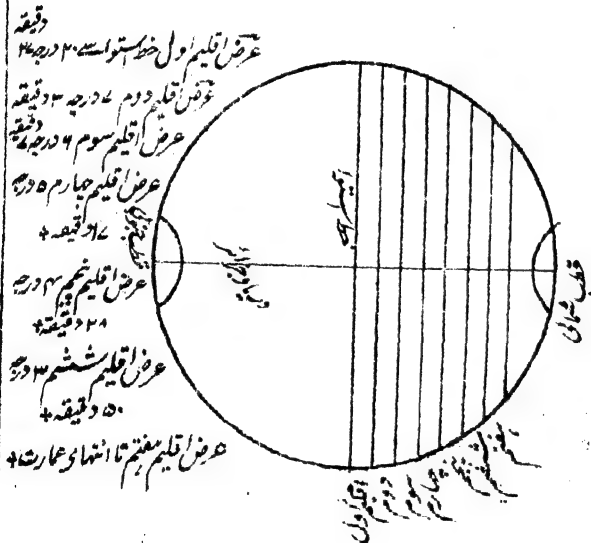 دقیقه
عرض اقلیم اول خط استوا سے ۲۰ درجہ ۲۷
عرض اقلیم دوم ۷ درجہ ۳ دقیقہ
دقیقہ
عرض اقلیم سوم ۶ درجہ
عرض اقلیم چہارم ۵ درجہ
۱۷ دقیقہ +
عرض اقلیم پنجم ۴ درجہ
۲۸ دقیقہ +
عرض اقلیم ششم ۳ درجہ
۵۰ دقیقہ +
عرض اقلیم ہفتم تا انتہای عمارت +
قطب شمالی
قطب جنوبی
اقلیم اول
دوم
سوم
چہارم